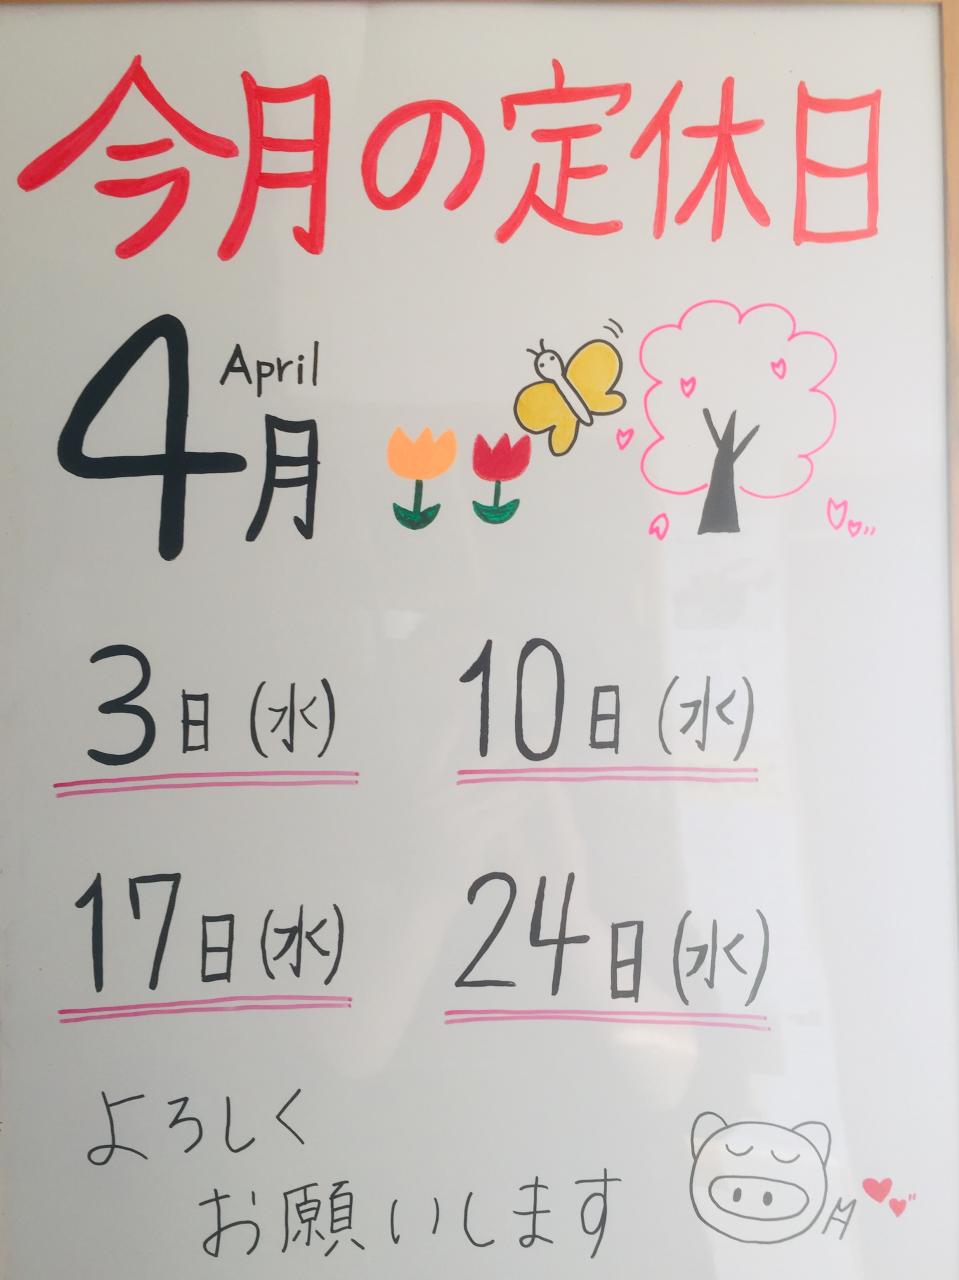 今月の定休日
April
4月
3日(水) 10日(水)
17日(水) 24日(水)
よろしく
お願いします